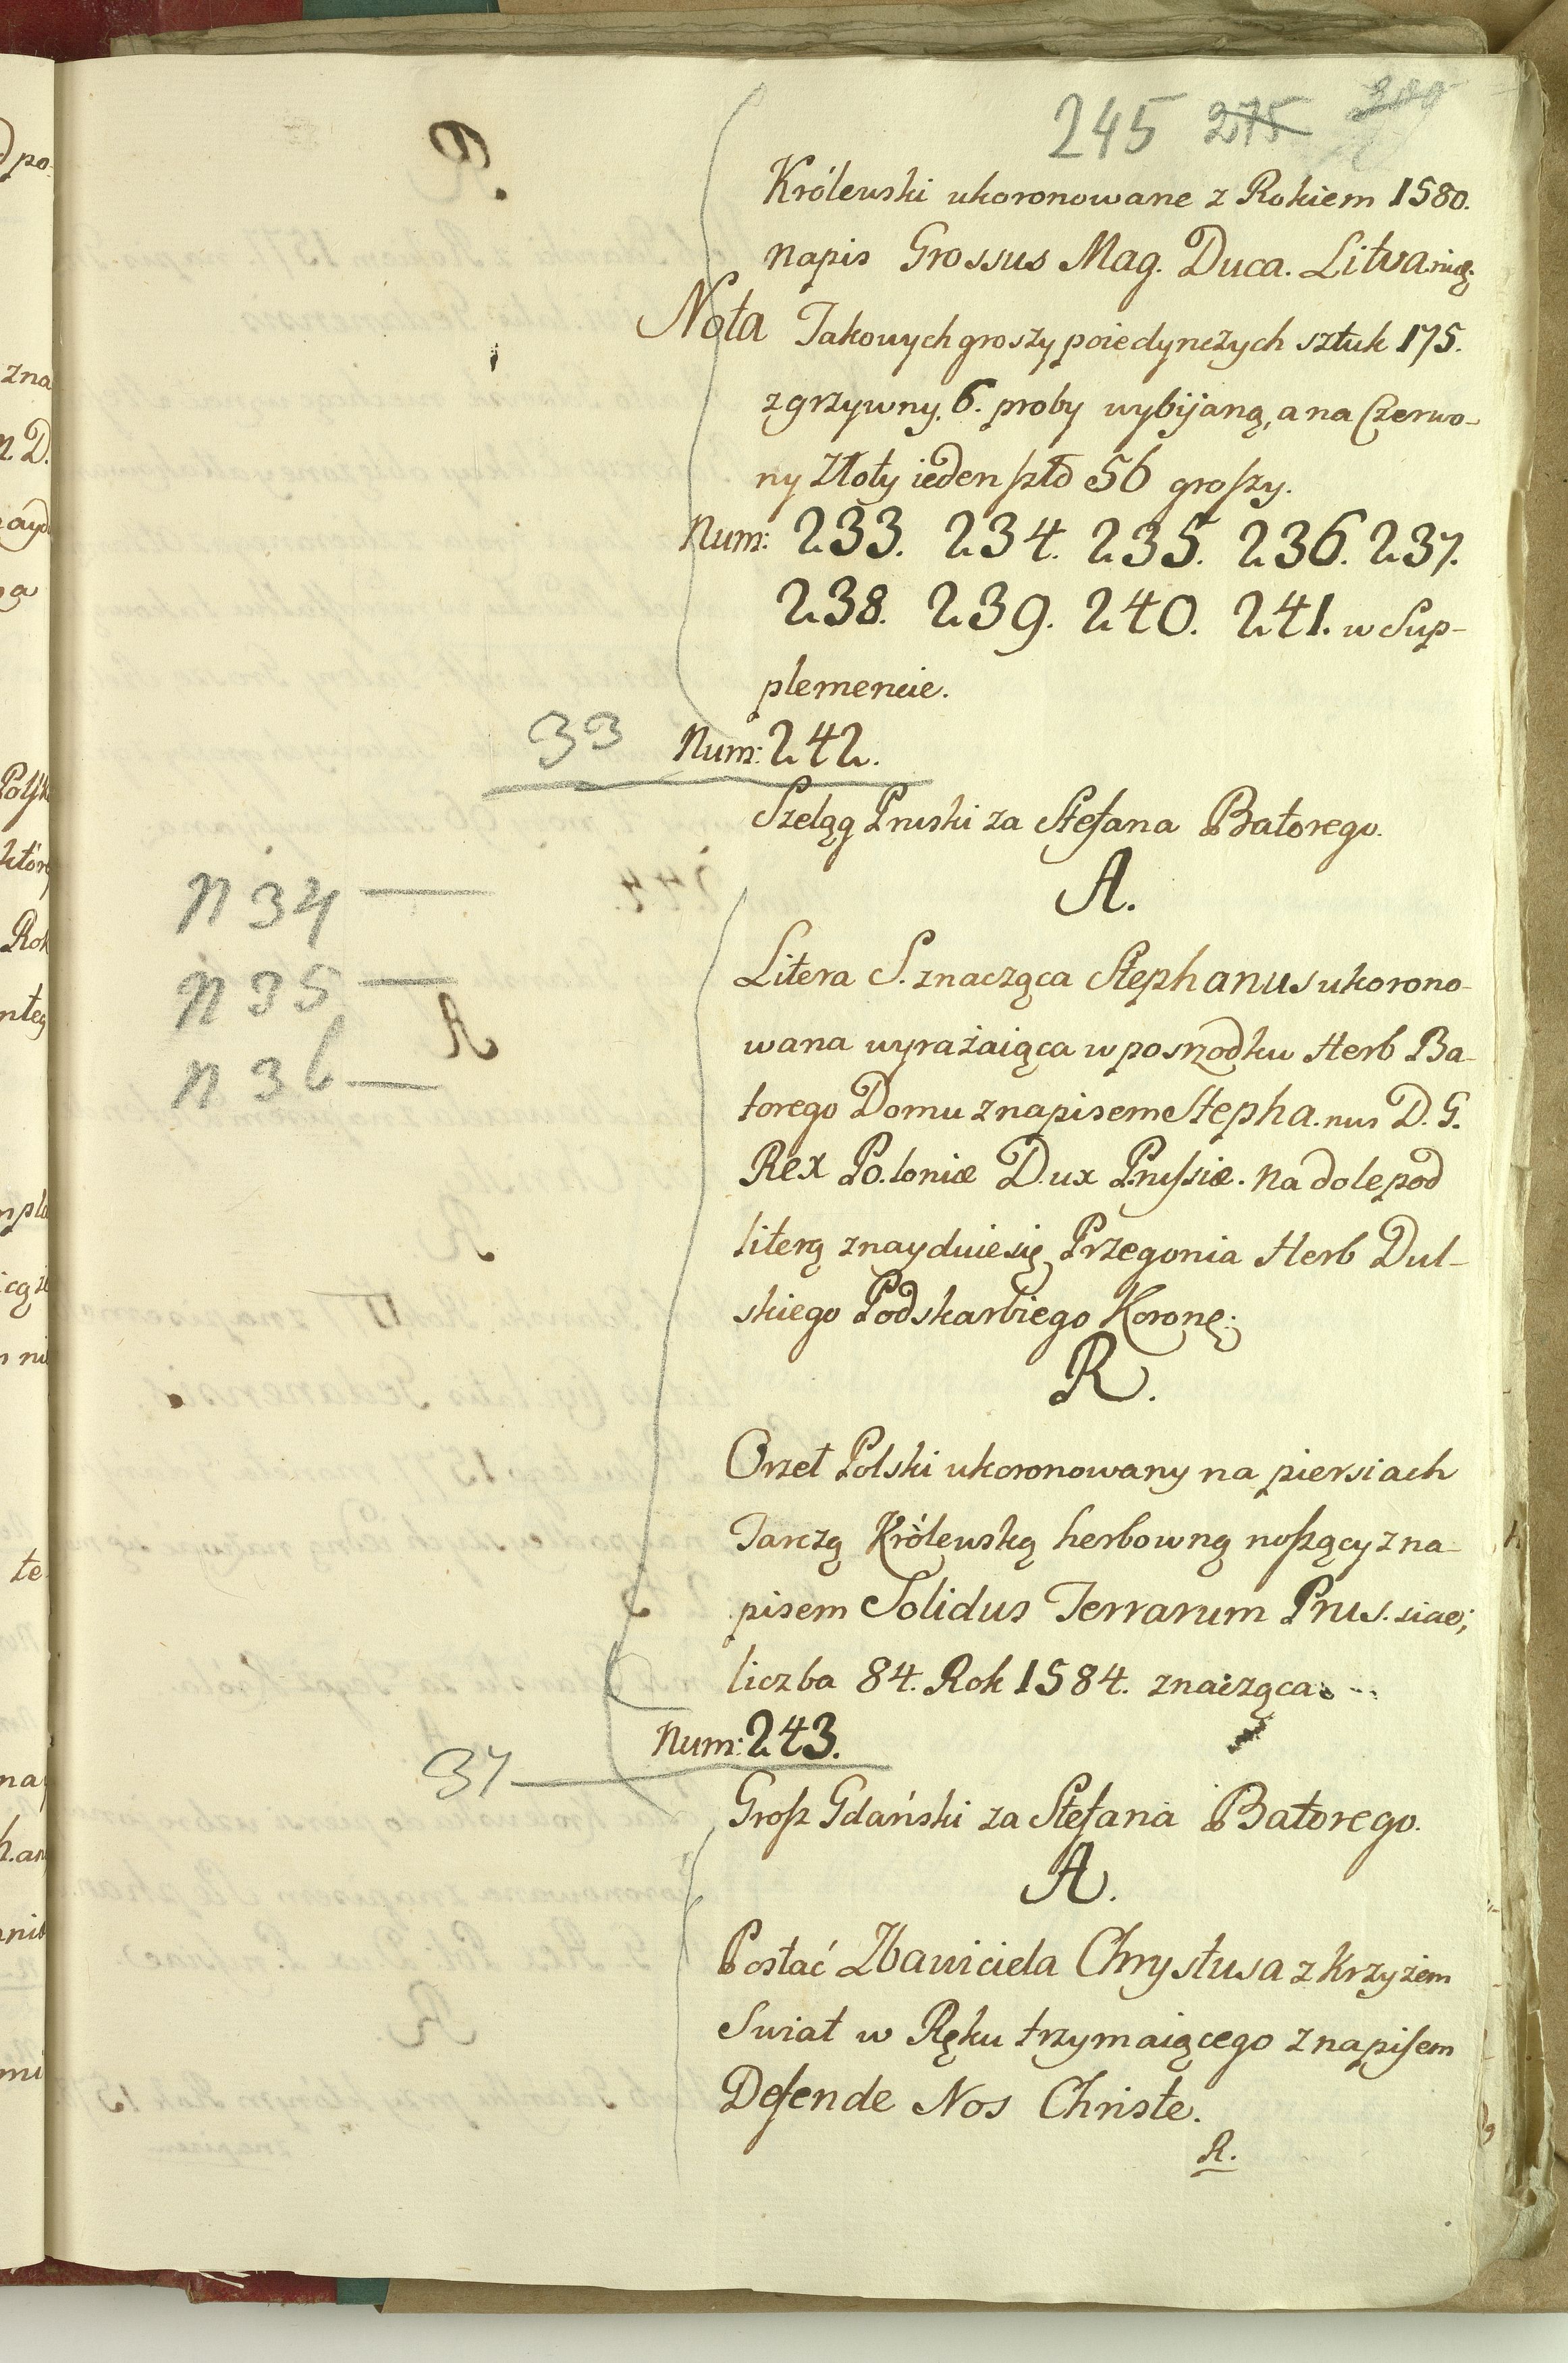 245 275
Królewski ukoronowane z Rokiem 1580.
napis Grossus Mag. Duca. Litva.niæ.
Nota Takowych groszy poiedynczych sztuk 175.
z grzywny 6. proby wybijaną, a na Czerwo-
ny Złoty ieden szło 56 groszy.
Num: 233. 234. 235. 236. 237.
238. 239. 240. 241. w Sup-
plemencie.
33 Num: 242.
Szeląg Pruski za Stefana Batorego.
A.
n 34
n 35
n 36
Litera S. znacząca Stephanus ukorono-
wana wyrażaiąca w posrzodku Herb Ba-
torego Domu z napisem Stepha.nus D. G.
Rex Po.loniæ D.ux Prussiæ. na dole pod
literą znayduie się Przegonia Herb Dul-
skiego Podskarbiego Koronę:
R.
Orzeł Polski ukoronowany na piersiach
Tarczą Królewską herbowną noszący z na-
pisem Solidus Terrarum Prus.siae;
liczba 84. Rok 1584. znacząca.
37 Num: 243.
Grosz Gdański za Stefana Batorego.
A.
Postać Zbawiciela Chrystusa z Krzyżem
Swiat w Ręku trzymaiącego z napisem
Defende Nos Christe.
R.